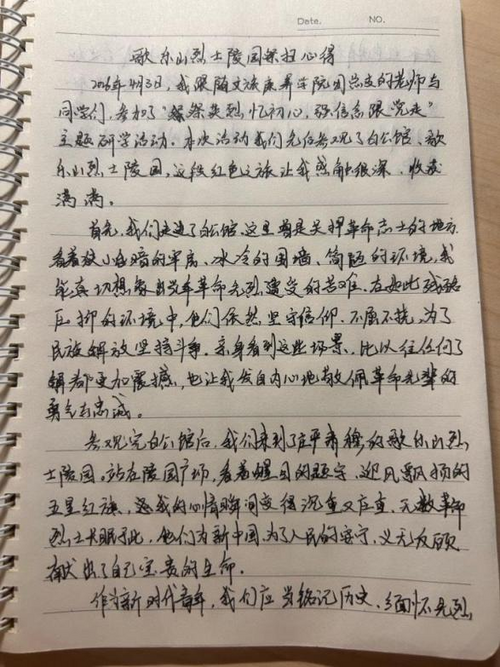 Date.  NO.
歌乐山烈士陵园祭扫心得
2026年4月3日,我跟随文旅康养学院团总支的老师与
同学们,参加了“缅祭英烈忆初心,强信念跟党走”
主题研学活动。本次活动我们先后参观了白公馆、歌
乐山烈士陵园,这段红色之旅让我感触很深、收获
满满。
首先,我们走进了白公馆,这里曾是关押革命志士的地方,
看着狭小昏暗的牢房、冰冷的围墙、简陋的环境,我
能真切想象当年革命先烈遭受的苦难。在如此残酷
压抑的环境中,他们依然坚守信仰、不屈不挠,为了
民族解放坚持斗争。亲身看到这些场景,比以往任何了
解都更加震撼,也让我发自内心地敬佩革命先辈的
勇气与忠诚。
参观完白公馆后,我们来到了庄严肃穆的歌乐山烈
士陵园,站在陵园广场,看着醒目的题字、迎风飘扬的
五星红旗,我的心情瞬间变得沉重又庄重,无数革命
烈士长眠于此,他们为新中国、为了人民的安宁,义无反顾
献出了自己宝贵的生命。
作为新时代青年,我们应当铭记历史、缅怀先烈,